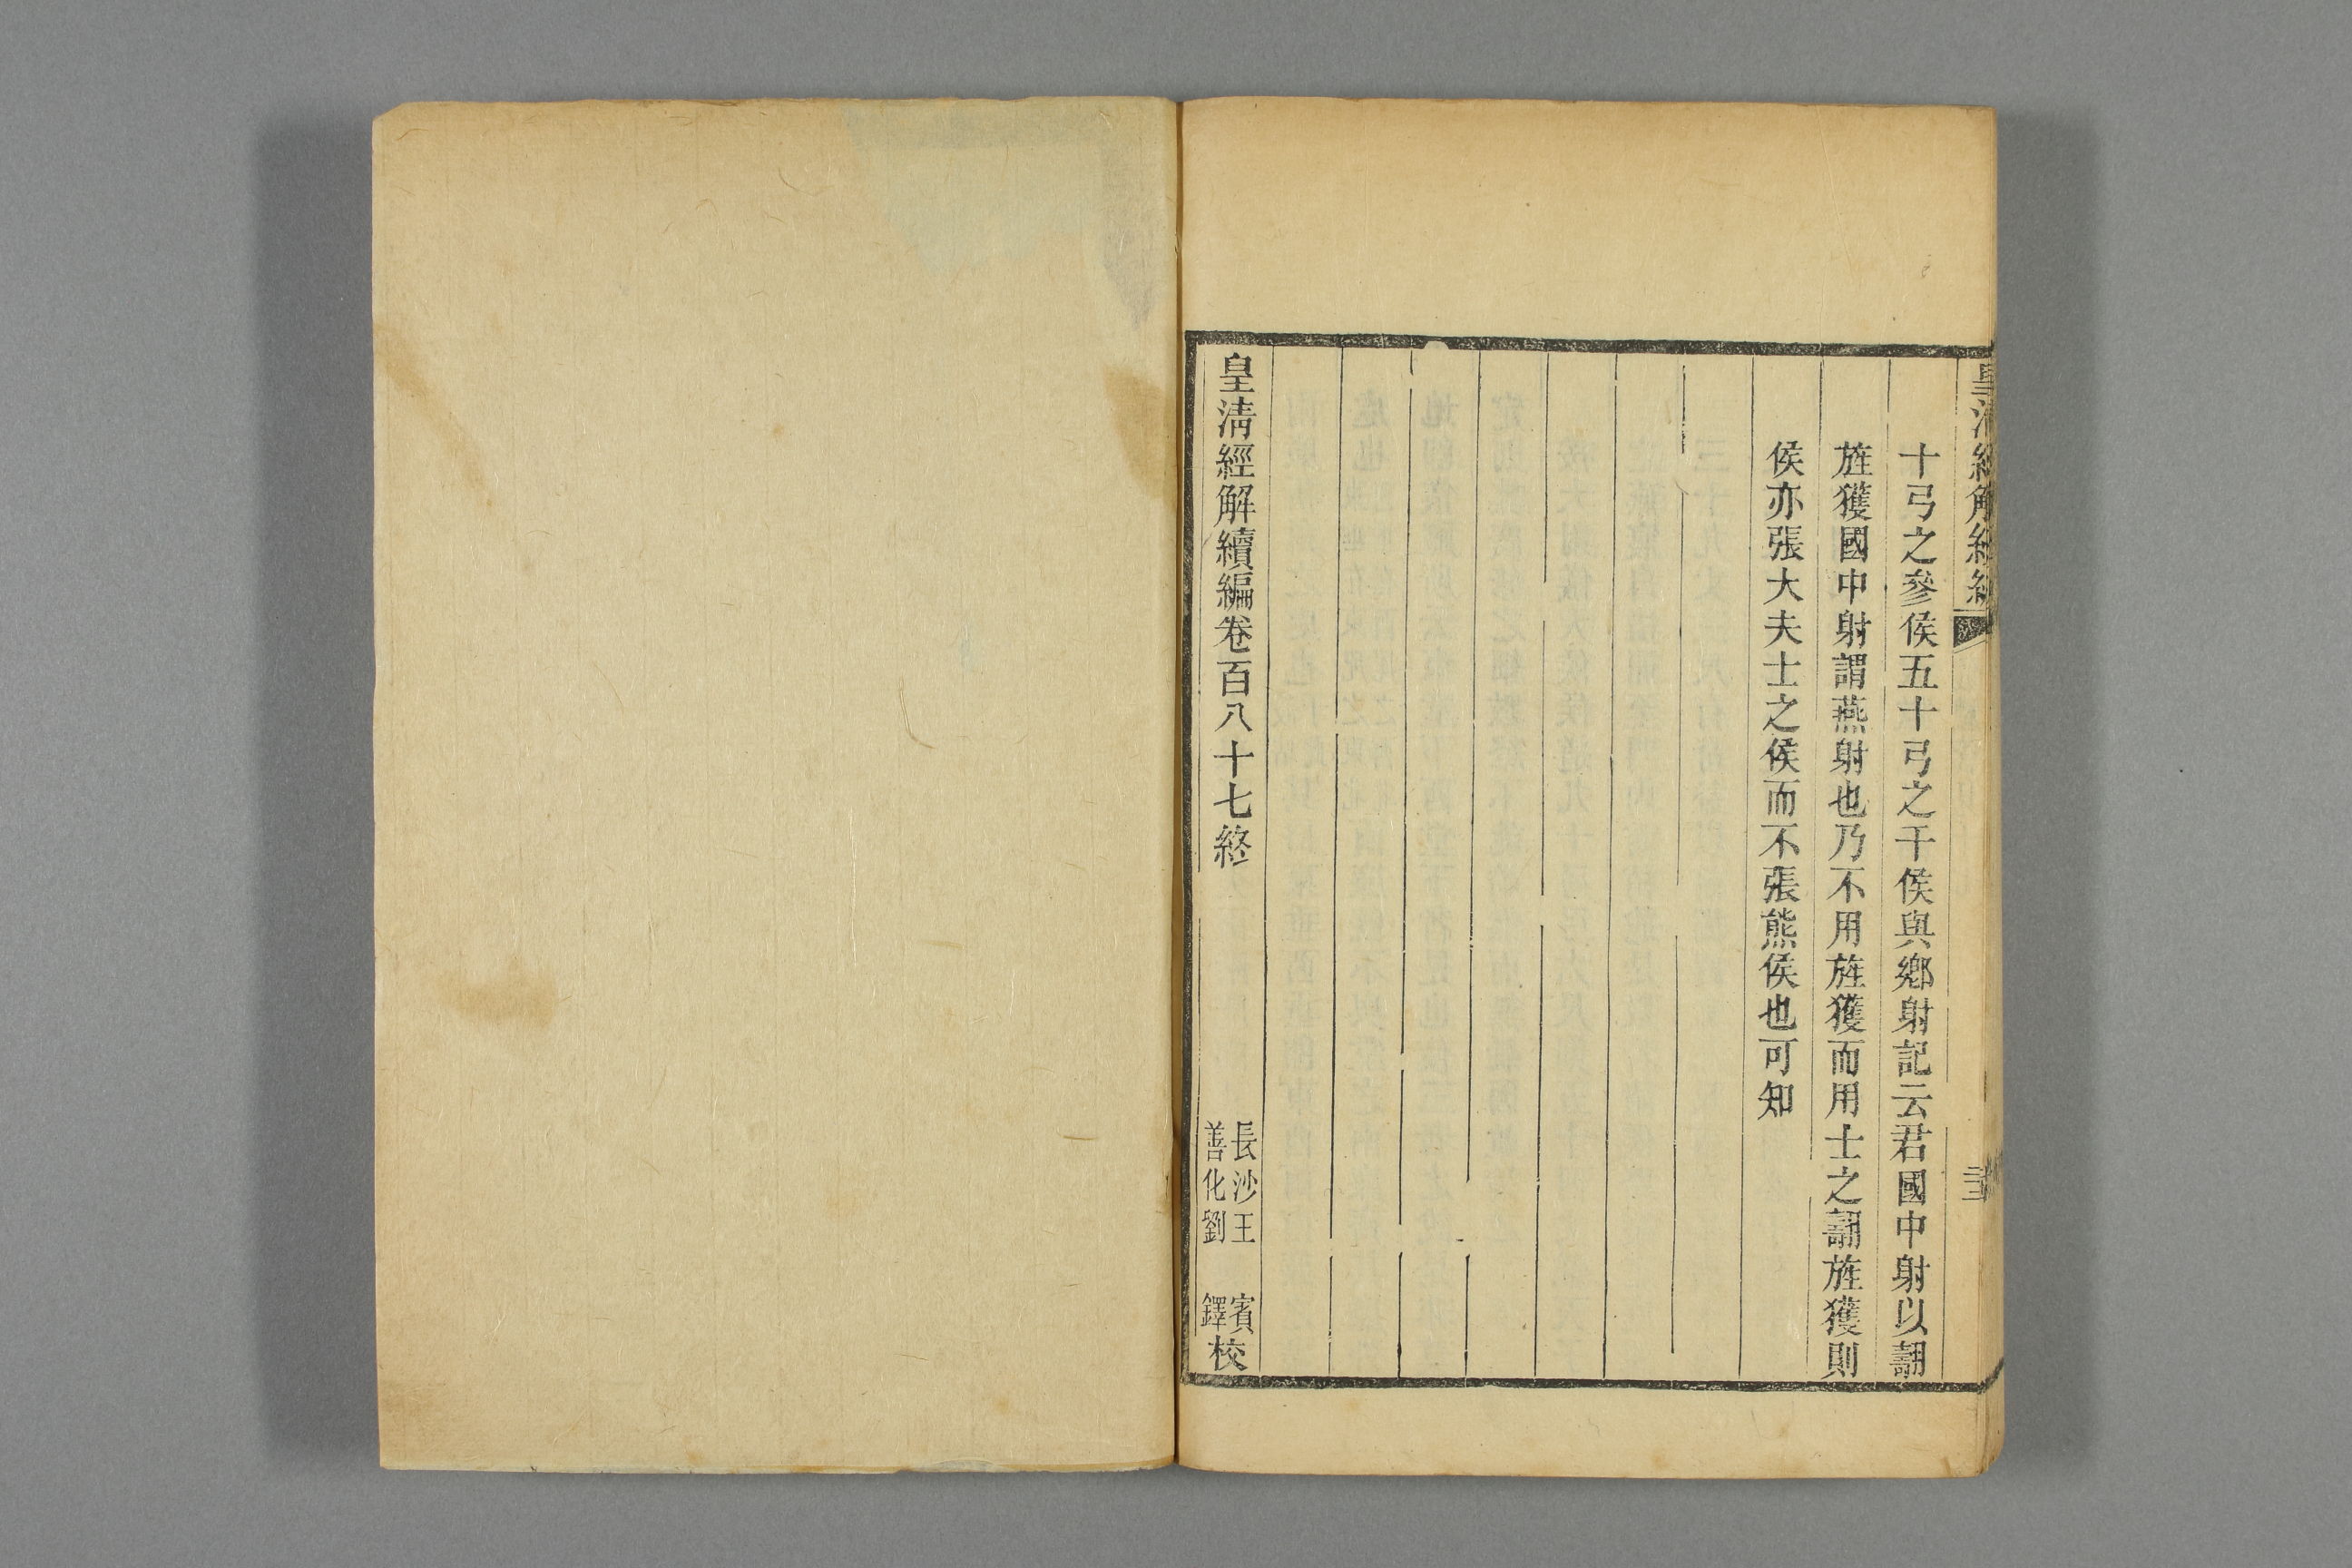 皇清經解續編
十弓之參侯五十弓之干侯與鄉射記云君國中射以翿
旌獲國中射謂燕射也乃不用旌獲而用士之翿旌獲則
侯亦張大夫士之侯而不張熊侯也可知
皇清經解續編卷百八十七終
長沙王 賓
善化劉 鐸
校